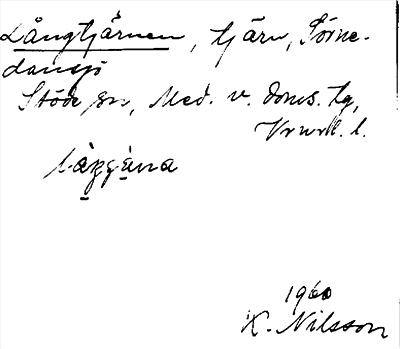 Långtjärnen, tjärn, Sörne-
dansjö
Stöde sn, Med. v. doms. tg,
Vrnrll. l.
1960
K. Nilsson